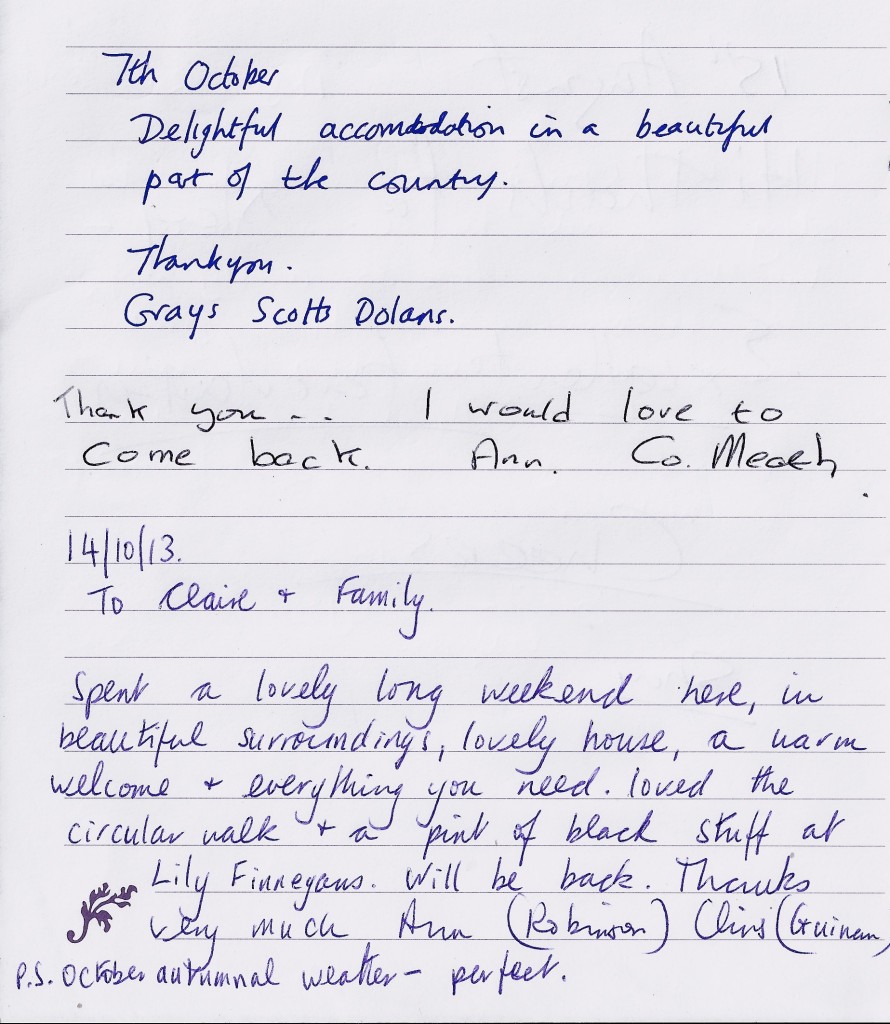 7th October
Delightful accomodation in a beautiful
part of the country.
Thankyou.
Grays Scotts Dolans.
Thank you... I would love to
Come back. Ann. Co. Meath.
14/10/13.
To Claire + Family.
Spent a lovely long weekend here, in
beautiful surroundings, lovely house, a warm
welcome + everything you need. loved the
circular walk + a pint of black stuff at
Lily Finnegans. Will be back. Thanks
very much Ann (Robinson) Chris (Guinan)
P.S. October autumnal weather - perfect.